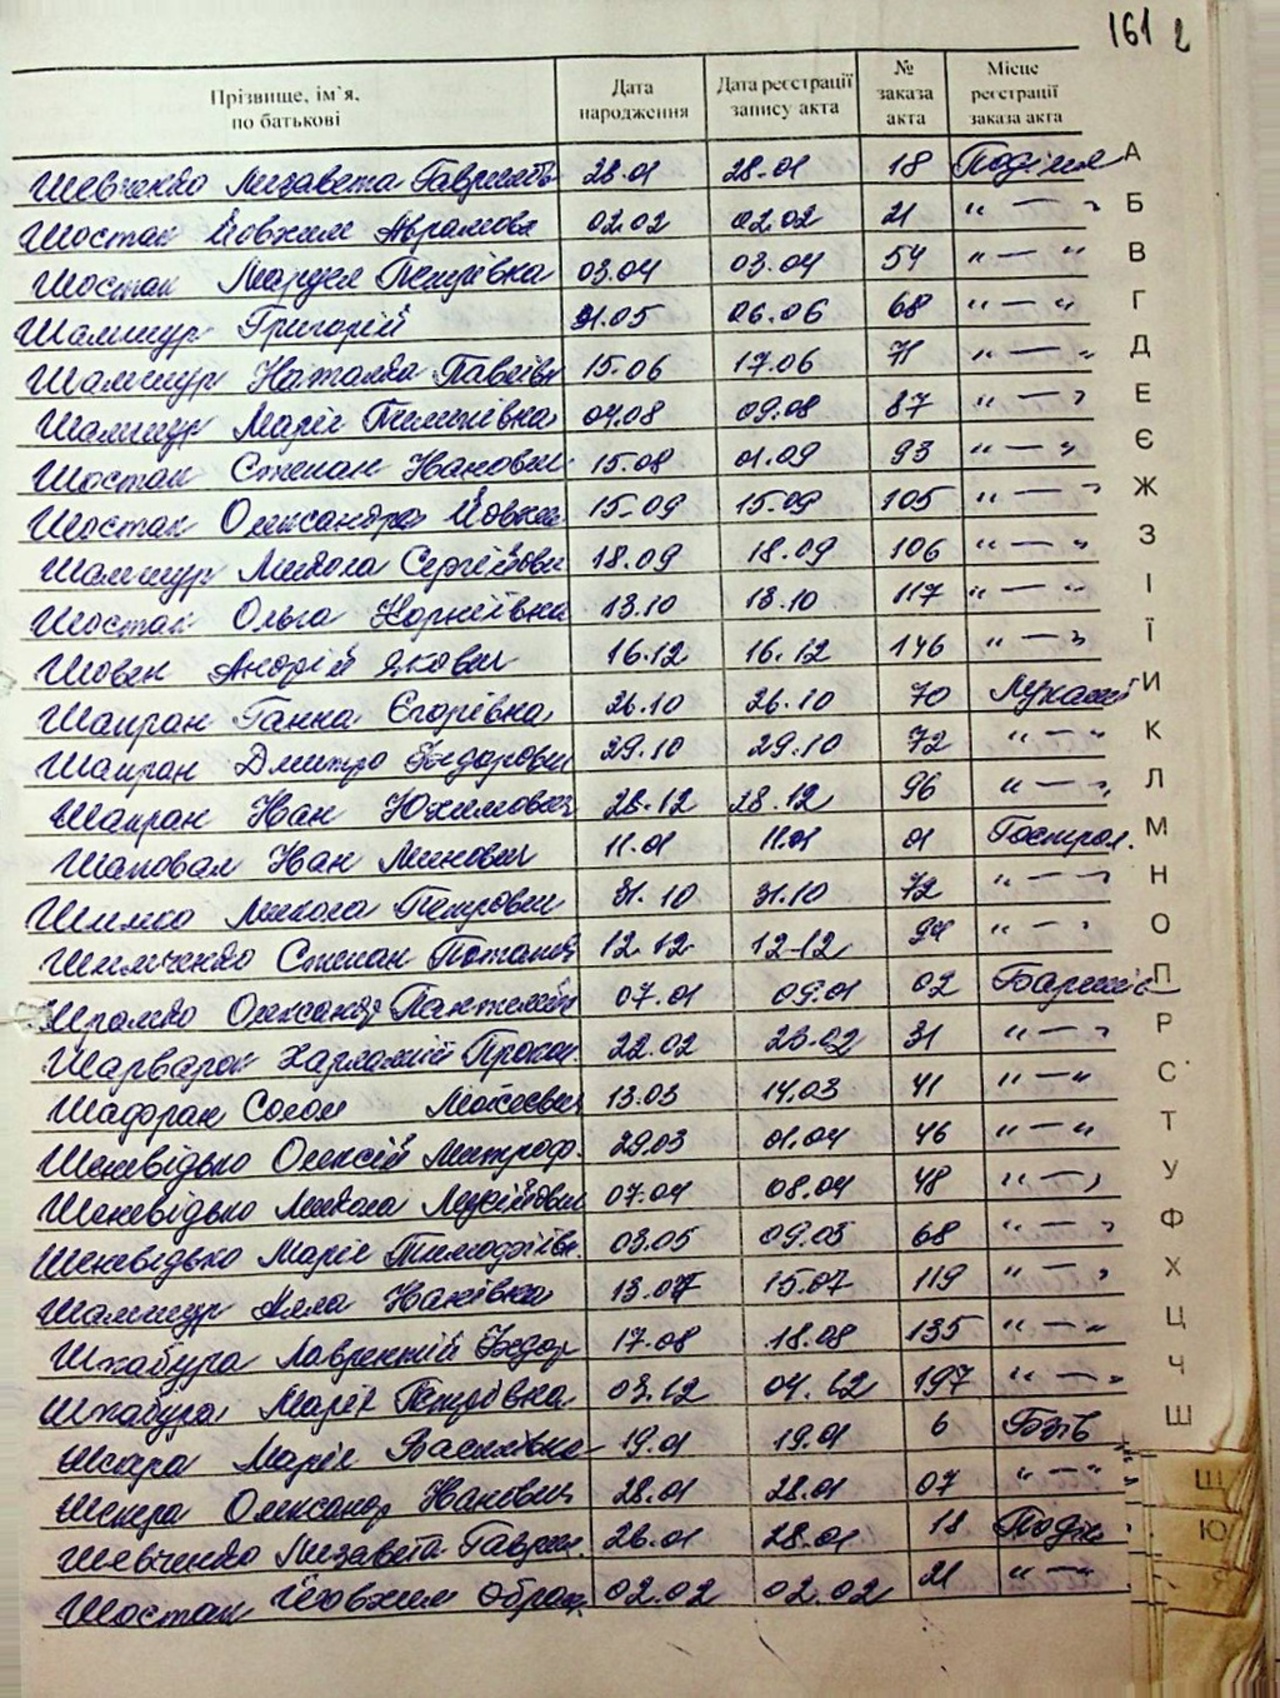 161
Прізвище, ім`я, по батькові Дата народження Дата реєстрації запису акта № заказа акта Місце реєстрації заказа акта
Шевченко Лизавета 28.01 28.01 18 Поділля А
Шостак Йовхим Аврамова 02.02 02.02 21 " — " Б
Шостак Петрівна 03.04 03.04 54 " — " В
Шамшур Григорій 31.05 06.06 68 " — " Г
Шамшур Наталка Павлівн 15.06 17.06 71 " — " Д
Шамшур Марія Пилипівна 04.08 09.08 87 " — " Е
Шостак Степан Іванович 15.08 01.09 93 " — " Є
Шостак Олександра Йовхим 15.09 15.09 105 " — " Ж
Шамшур Микола Сергійови 18.09 18.09 106 " — " З
Шостак Ольга Корніївна 13.10 13.10 117 " — " І
Шовен Андрій Якович 16.12 16.12 146 " — " Ї
Шапран Ганна Єгорівна 26.10 26.10 70 И
Шапран Дмитро Федорович 29.10 29.10 72 " — " К
Шапран Іван Юхимович 28.12 28.12 96 " — " Л
Шаповал Іван Минович 11.01 11.01 01 Гострол. М
Шимко Микола Петрович 31.10 31.10 72 " — " Н
Шимченко Степан Потапов 12.12 12.12 94 " — " О
Шрамко Олександр 07.01 09.01 02 П
Шарварок Харлампій Прокоп. 22.02 23.02 31 " — " Р
Шафоран Соломон Мойсеєвич 13.03 14.03 41 " — " С
Шеневідько Олексій Митроф. 29.03 01.04 46 " — " Т
Шеневідько Микола 07.04 08.04 48 " — " У
Шеневідько Марія Тимофіївн. 03.05 09.05 68 " — " Ф
Шамшур Алла Іванівна 13.07 15.07 119 " — " Х
Шкабура Лаврентій Федор 17.08 18.08 135 " — " Ц
Шкабура Марія Петрівна 03.12 04.12 197 " — " Ч
Шкира Марія Василівна 19.01 19.01 6 Бзів Ш
Шкира Олександр Іванович 28.01 28.01 07 " — " Щ
Шевченко Лизавета Гаврил. 26.01 28.01 18 Поділ Ю
Шостак Йовхим Обрам. 02.02 02.02 21 " — " Я